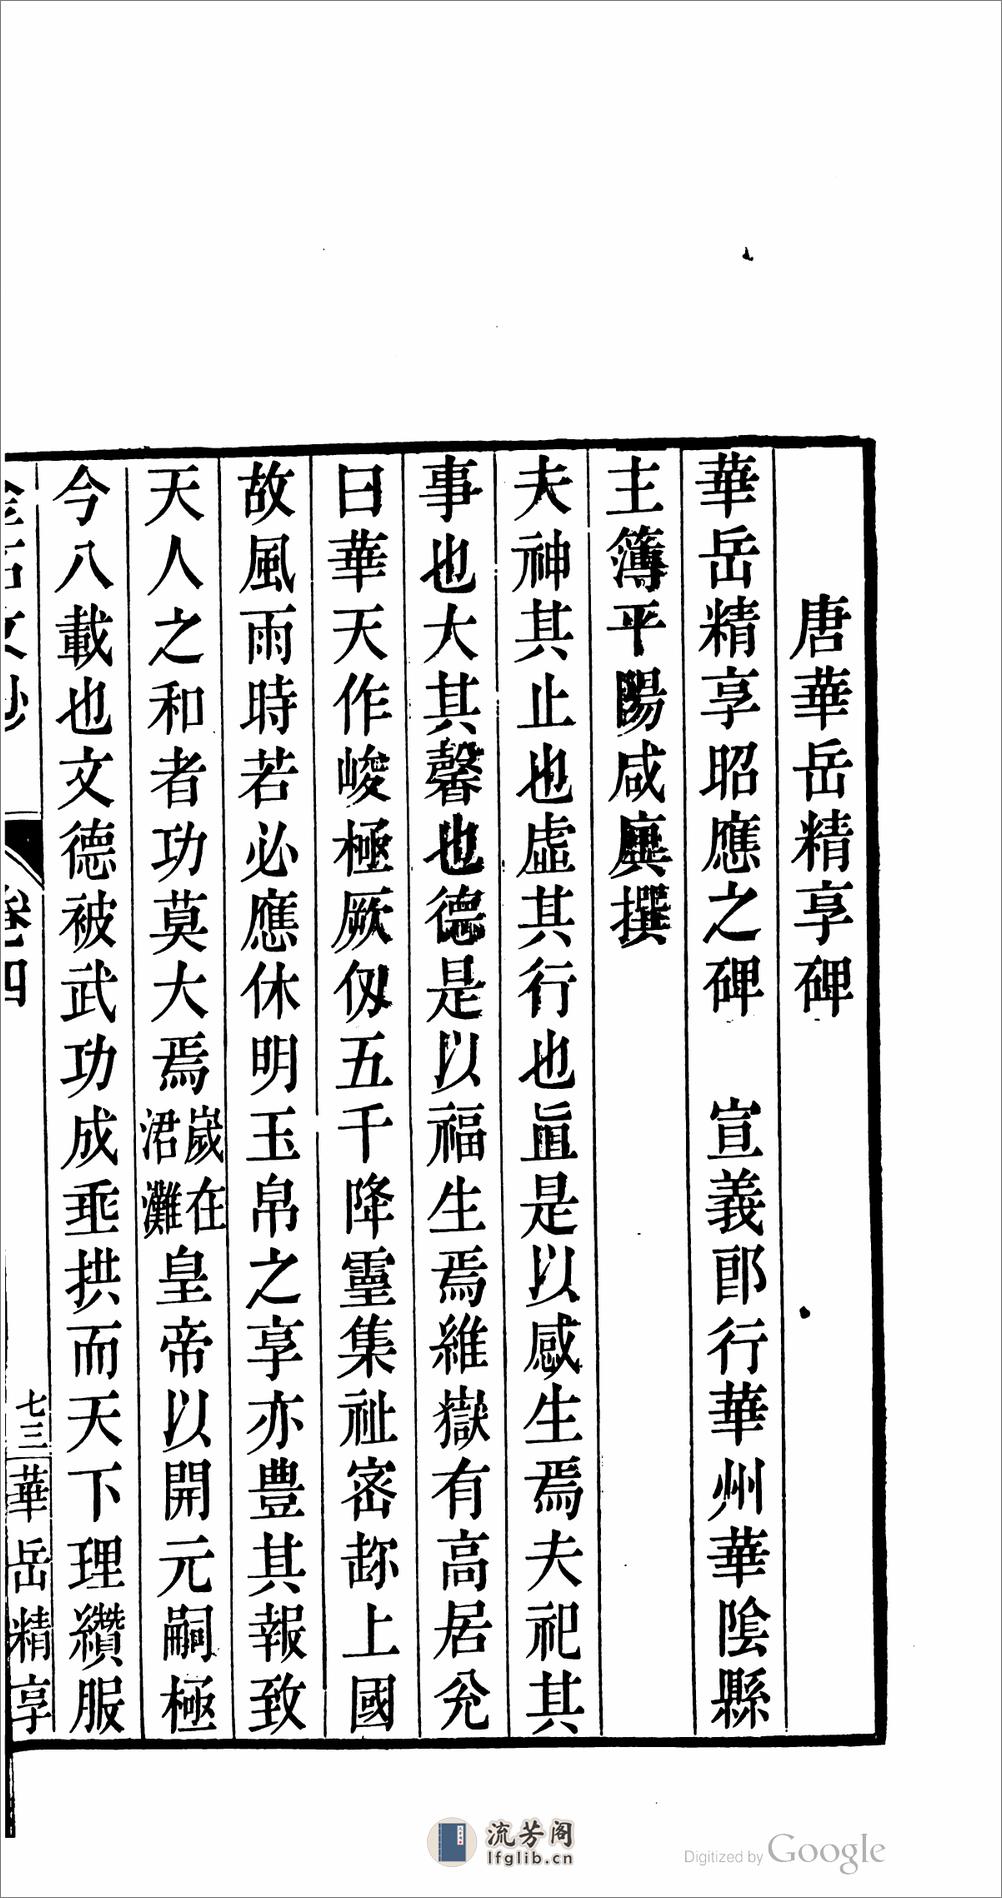 唐華岳精享碑
華岳精享昭應之碑　宣義郎行華州華陰縣
主簿平陽咸廙撰
夫神其止也虛其行也眞是以感生焉夫祀其
事也大其馨也德是以福生焉維嶽有高居兊
曰華天作峻極厥仭五千降靈集祉密邇上國
故風雨時若必應休明玉帛之享亦豊其報致
天人之和者功莫大焉歲在涒灘皇帝以開元嗣極
今八載也文德被武功成乖拱而天下理纘服
金石文鈔　卷四　七三　華岳精享
流芳阁
lfglib.cn
Digitized by Google